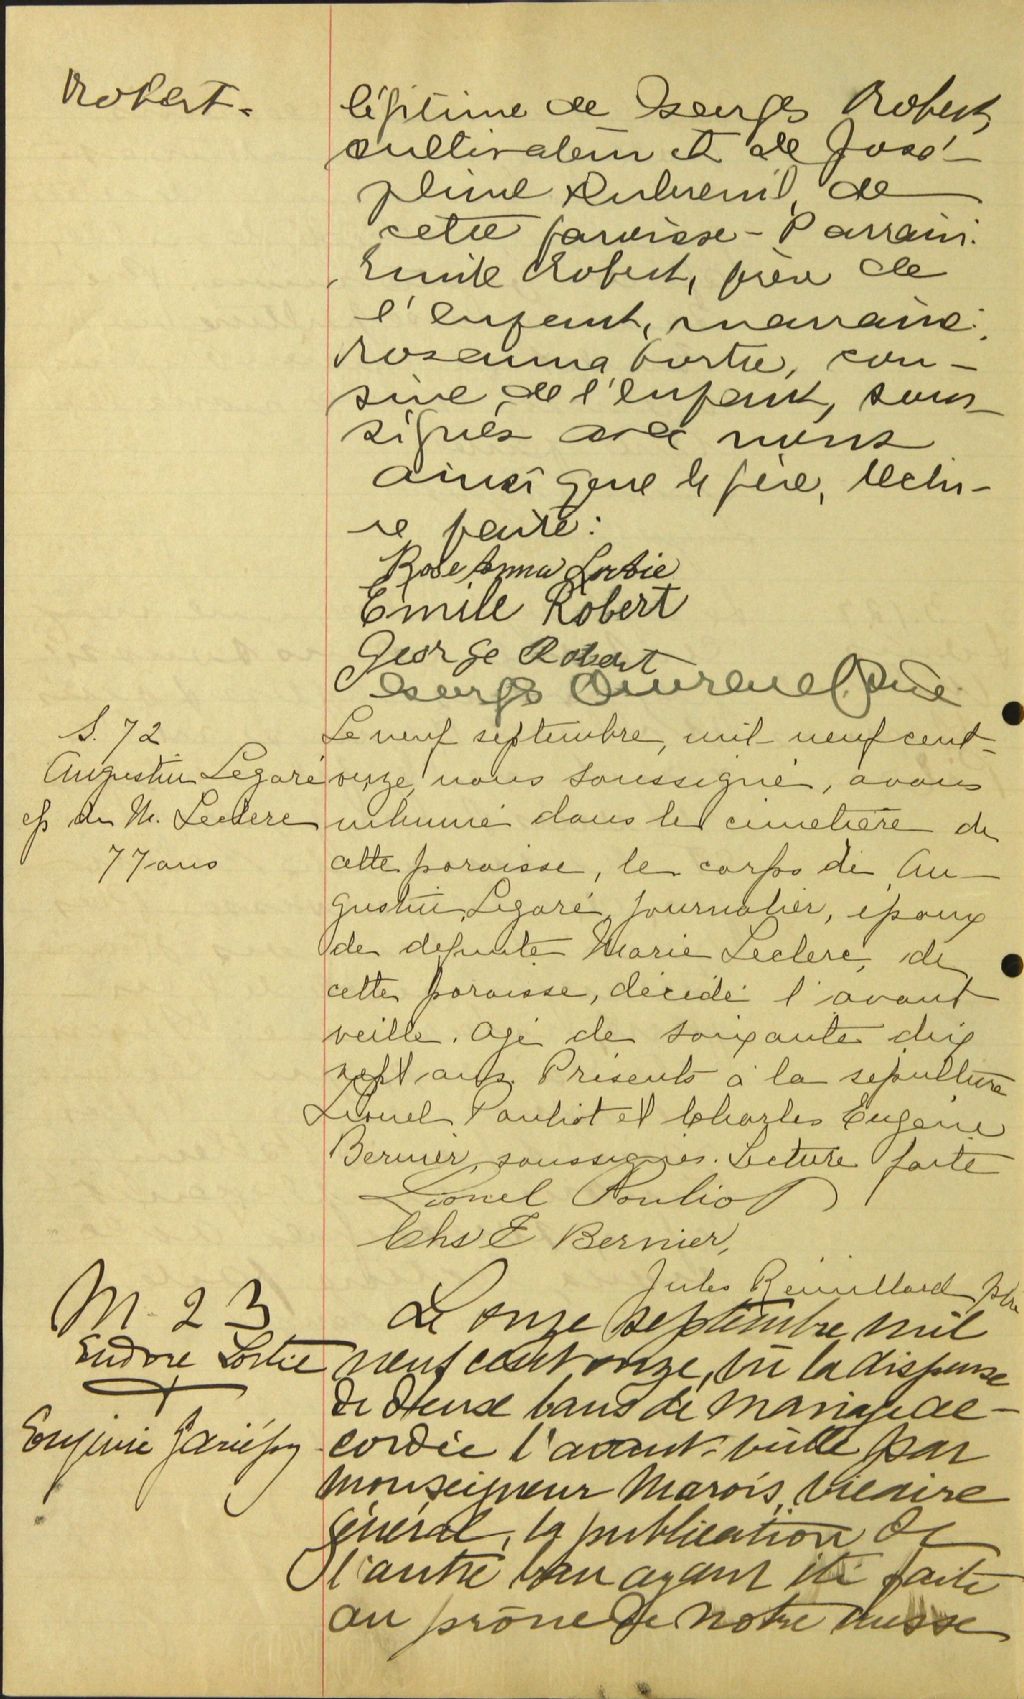 Robert -
légitime de Georges Robert,
cultivateur et de José-
phine Dubreuil, de
cette paroisse - Parrain:
Emile Robert, frère de
l'enfant, marraine:
Rosanna Lortie, cou-
sine de l'enfant, sous-
signés avec nous
ainsi que le père, lectu-
re faite:
Rose Anna Lortie
Emile Robert
George Robert
Georges
S. 72
Augustin Légaré
ép de M. Leclerc
77 ans
Le neuf septembre, mil neuf cent-
onze, nous soussigné, avons
inhumé dans le cimetière de
cette paroisse, le corps de Au-
gustin Légaré, journalier, époux
de défunte Marie Leclerc, de
cette paroisse, décédé l'avant
veille. agé de soixante dix
sept ans. Présents à la sépulture
Lionel Pouliot et Charles Eugène
Bernier, soussignés. Lecture faite
Lionel Pouliot
Chs E Bernier,
Jules Rémillard ptre
M. 23
Eudore Lortie
&
Eugénie Gariépy
Le onze septembre mil
neuf cent onze, vu la dispense
de deux bans de mariage ac-
cordée l'avant-veille par
monseigneur Marois, vicaire
général, la publication de
l'autre ban ayant été faite
au prône de notre messe